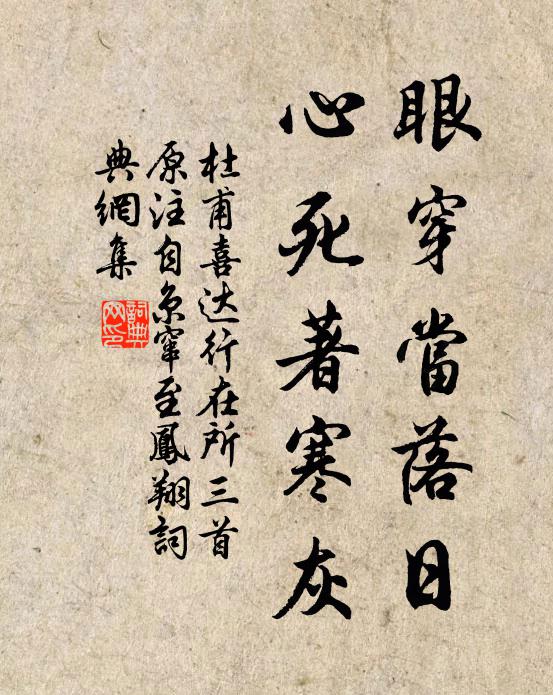 眼穿當落日
心死著寒灰
杜甫喜达行在所三首
原注自京窜至鳳翔詞
典網集
詞典网印